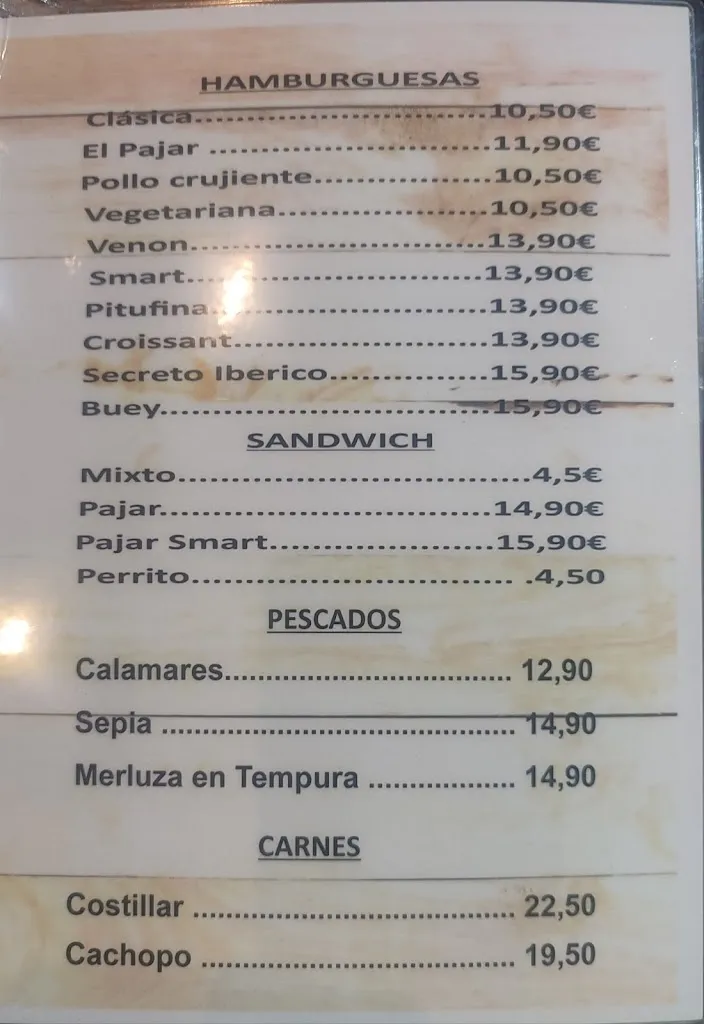 HAMBURGUESAS
Clásica..............................10,50€
El Pajar .............................11,90€
Pollo crujiente..................10,50€
Vegetariana......................10,50€
Venon..............................13,90€
Smart..............................13,90€
Pitufina............................13,90€
Croissant..........................13,90€
Secreto Iberico................15,90€
Buey.................................15,90€
SANDWICH
Mixto...................................4,5€
Pajar.................................14,90€
Pajar Smart.......................15,90€
Perrito................................ .4,50
PESCADOS
Calamares................................... 12,90
Sepia ........................................... 14,90
Merluza en Tempura .................. 14,90
CARNES
Costillar ....................................... 22,50
Cachopo ...................................... 19,50